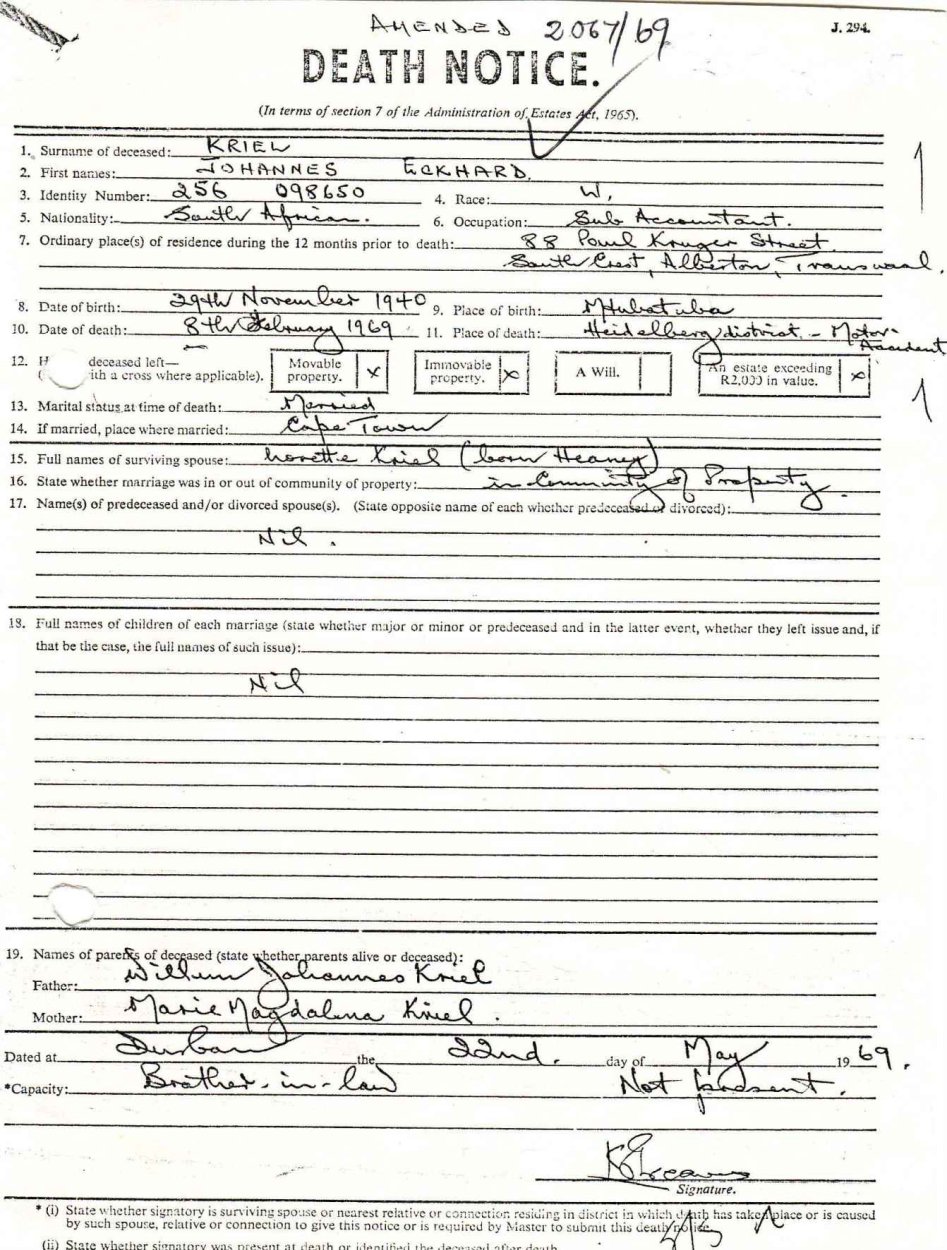 AMENDED 2067/69
J. 294.
DEATH NOTICE.
(In terms of section 7 of the Administration of Estates Act, 1965).
1. Surname of deceased: KRIEL
2. First names: JOHANNES ECKHARD.
3. Identity Number: 256 098650 4. Race: W.
5. Nationality: South African. 6. Occupation: Sub Accountant.
7. Ordinary place(s) of residence during the 12 months prior to death: 88 Paul Kruger Street
South Crest, Alberton, Transvaal.
8. Date of birth: 29th November 1940 9. Place of birth: Mtubatuba
10. Date of death: 8th February 1969 11. Place of death: Heidelberg district - Motor
Accident
12. H deceased left—
( ith a cross where applicable). Movable property. x Immovable property. x A Will. An estate exceeding R2,000 in value. x
13. Marital status at time of death: Married
14. If married, place where married: Cape Town
15. Full names of surviving spouse: Kriel (born Heaney)
16. State whether marriage was in or out of community of property: in Community of Property.
17. Name(s) of predeceased and/or divorced spouse(s). (State opposite name of each whether predeceased or divorced):
Nil.
18. Full names of children of each marriage (state whether major or minor or predeceased and in the latter event, whether they left issue and, if
that be the case, the full names of such issue):
Nil
19. Names of parents of deceased (state whether parents alive or deceased):
Father: Willem Johannes Kriel
Mother: Marie Magdalena Kriel.
Dated at Durban the 22nd. day of May 19 69.
*Capacity: Brother-in-law Not present.
Signature.
* (i) State whether signatory is surviving spouse or nearest relative or connection residing in district in which death has taken place or is caused
by such spouse, relative or connection to give this notice or is required by Master to submit this death notice.
(ii) State whether signatory was present at death or identified the deceased after death.